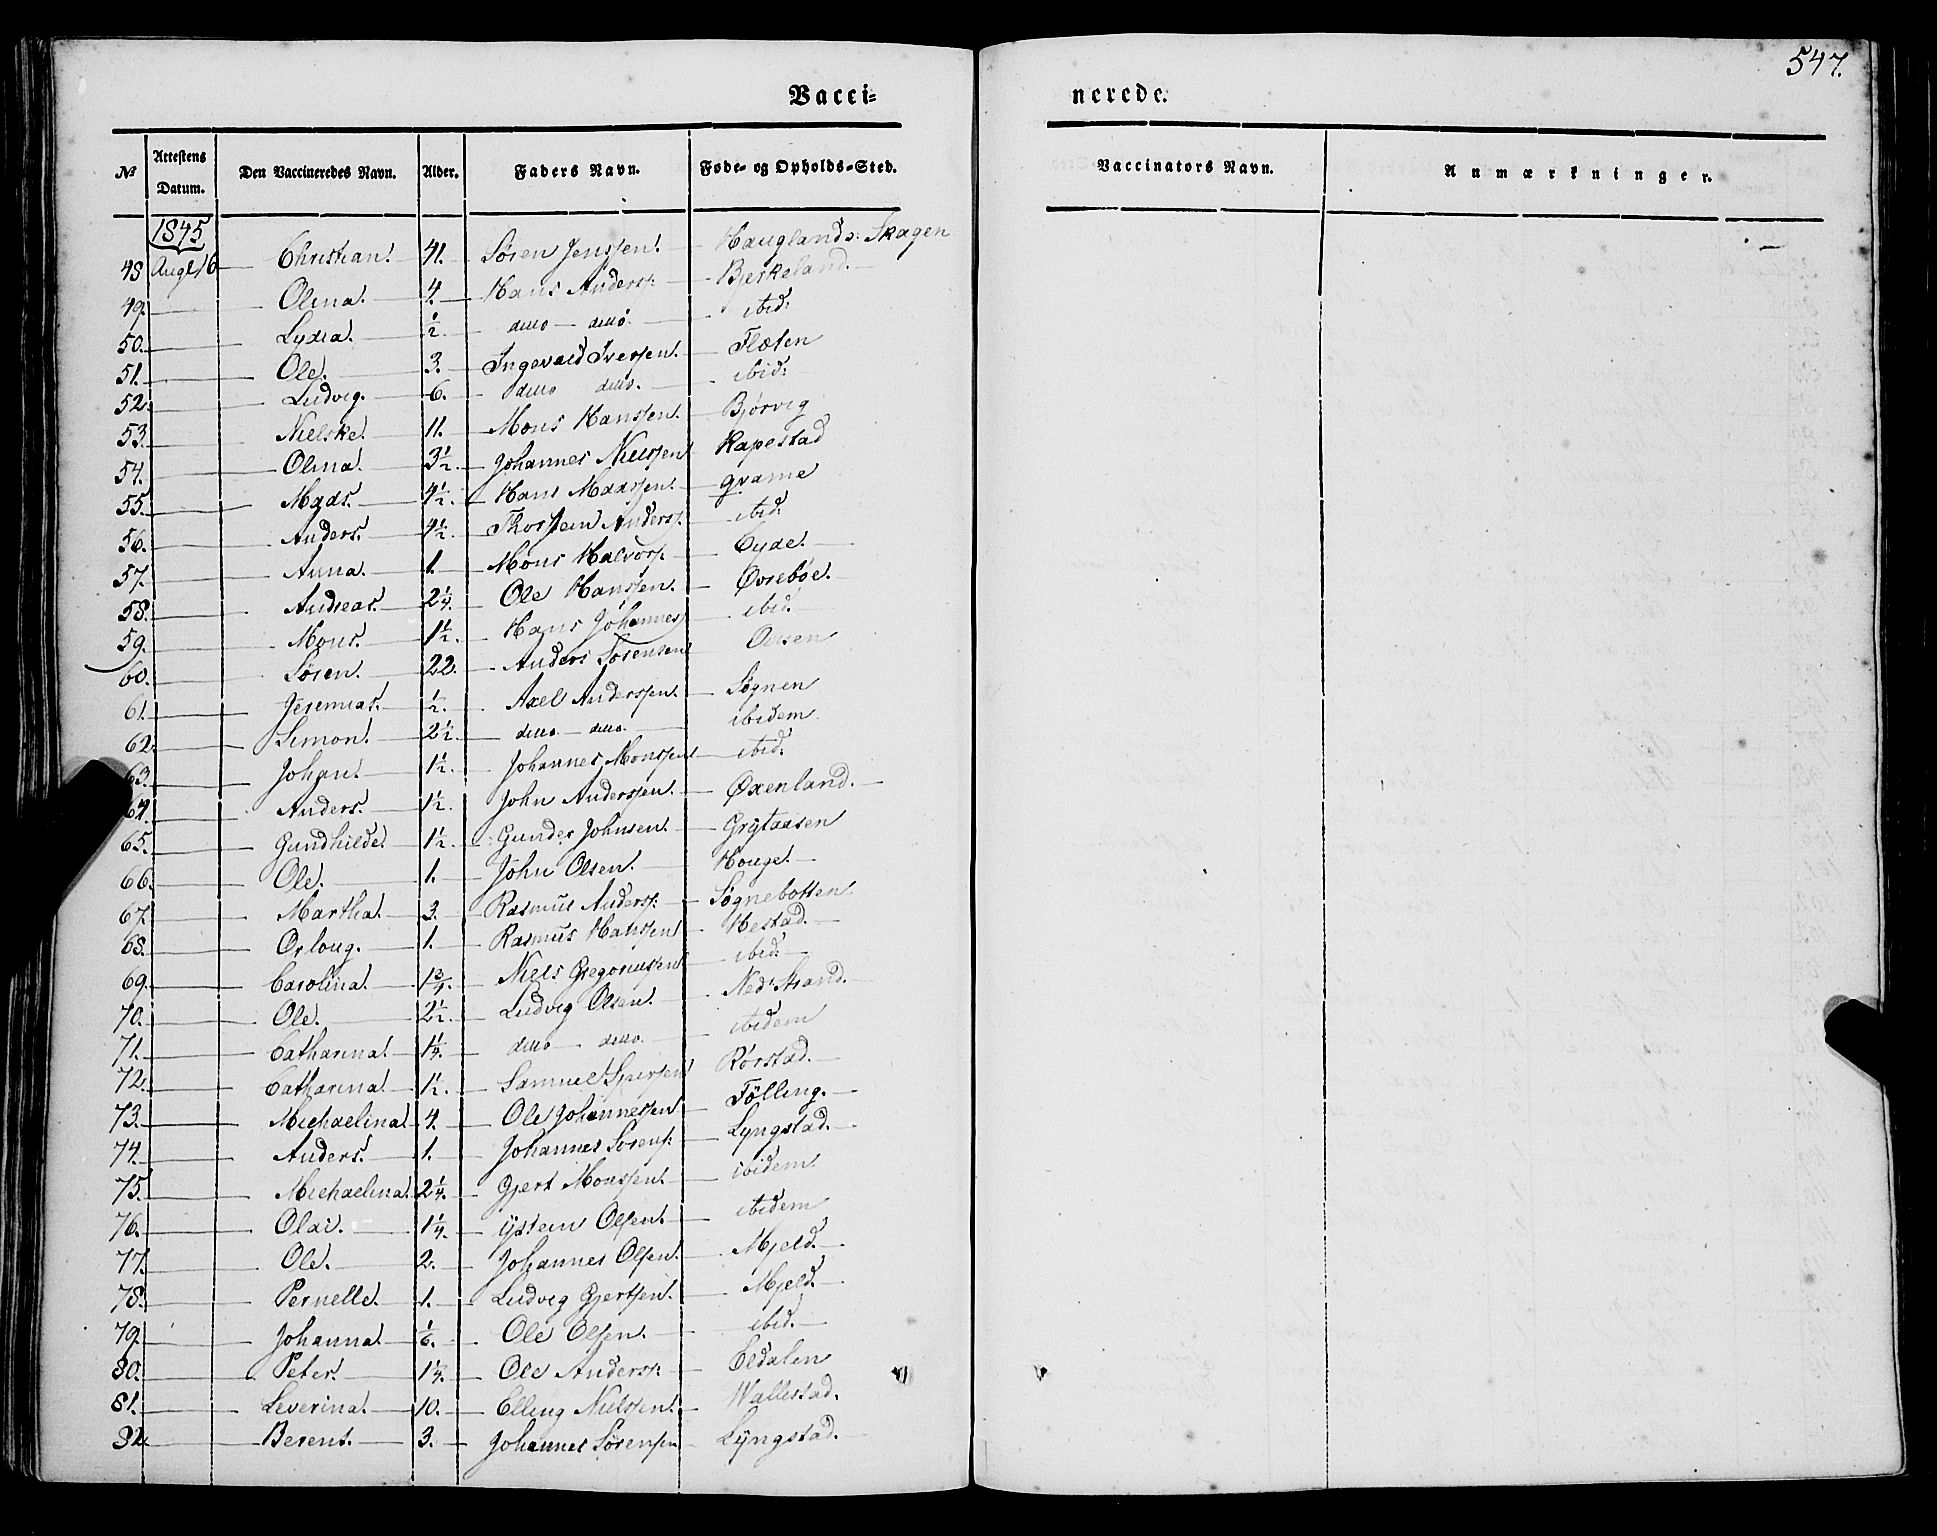 547.
Vacci=
nerede.
№ Attestens Datum. Den Vaccineredes Navn. Alder. Faders Navn. Føde- og Opholds-Sted. Vaccinators Navn. Anmærkninger.
1845
48 Aug. 16 Christian. 41. Søren Jenssen. Hauglands: Skagen
49. Olina. 4. Hans Anderss: Bjerkeland.
50. Lydia. ½ ditto ditto. ibid:
51. Ole. 3. Ingevald Iverssen. Fløten
52. Ludvig. 6. ditto ditto. ibid:
53. Nielske. 11. Mons Hanssen. Bjørvig
54. Olina. 3½. Johannes Nielssen Rapestad
55. Mads. 4½. Hans Madssen. qvame
56. Anders. 4½. Thorstein Anderss: ibid:
57. Anna. 1. Mons Halvorss: Eyde.
58. Andreas. 2¼. Ole Hanssen. Øvrebøe.
59. Mons. 1½. Hans Johannes ibid.
60. Søren. 22. Anders Sørensen
61. Jeremias. ½. Axel Anderssen. Søgnen
62. Simon. 2½. ditto ditto. ibidem.
63. Johan. 1½. Johannes Monssen ibid.
64. Anders. 1½. John Anderssen. Øxenland.
65. Gundhilde. 1½. Gunder Johnsen. Grytaasen
66. Ole. 1. John Olsen. Houge.
67. Martha. 3. Rasmus Anderss: Søgnebotten
68. Orloug. 1. Rasmus Hanssen Hestad.
69. Carolina. 1¾. Niels Gregoriussen ibid:
70. Ole. 2½. Ludvig Olsen. Ned: Strand.
71. Catharina. 1¼. ditto ditto. ibidem
72. Catharina. 1½. Samuel Rørstad.
73. Michaelina. 4. Ole Johannessen Følling.
74. Anders. 1. Johannes Sørens: Lyngstad.
75. Michaelina. 2¼. Gjert Monssen. ibidem.
76. Olai. 1¼. ÿstein Olsen. ibidem
77. Ole. 2. Johannes Olsen. Mjeld.
78. Pernelle. 1. Ludvig Gjertsen. Mjeld.
79. Johanna. ⅙. Ole Olsen. ibid.
80. Peter. 1¼. Ole Anderss: Eldalen
81. Severina. 10. Elling Nielssen. Wallestad.
82. Berent. 3. Johannes Sørensen Lÿngstad.